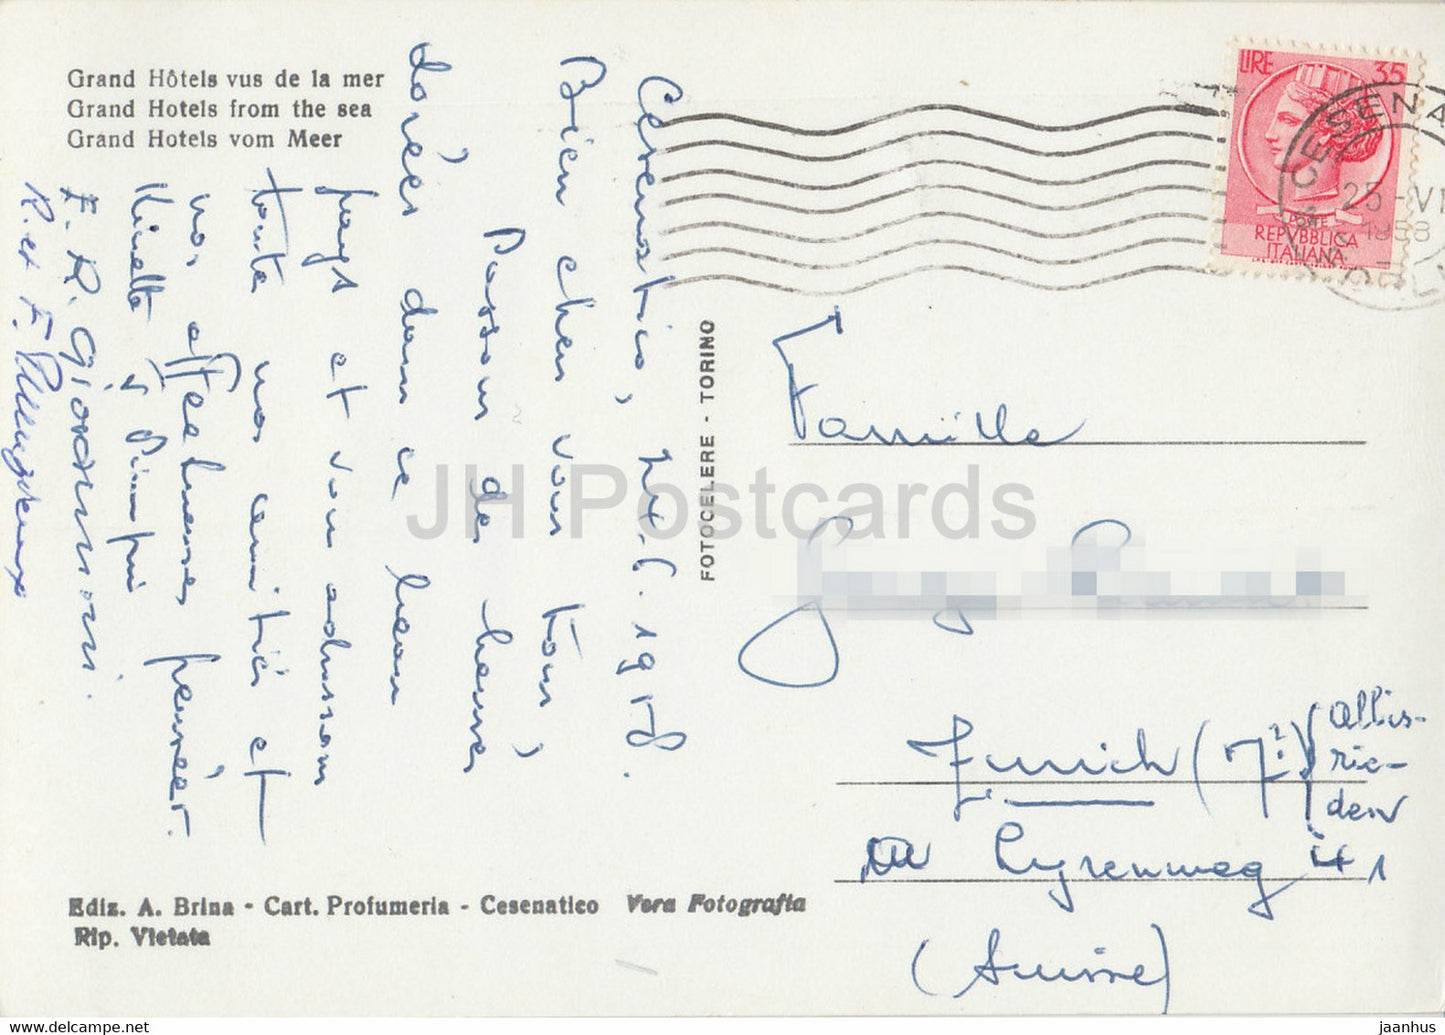 Grand Hôtels vus de la mer
Grand Hotels from the sea
Grand Hotels vom Meer
Cesenatico, 24.6.1958.
Bien chers vous tous,
Passons de heures
dorées dans ce beau
pays et vous adressons
toute nos amitiés et
nos affectueuses pensées.
E. R. Giovannoni.
R. et F.
FOTOCELERE - TORINO
LIRE 35
POSTE
REPVBBLICA
ITALIANA
CESENA
25 -VI
1958
Famille
Zurich (47) Altis-
rie-
den
Lyrenweg 41
(Suisse)
JH Postcards
Ediz. A. Brina - Cart. Profumeria - Cesenatico Vera Fotografia
Rip. Vietata
eu.hippostcard.com/store/jaanhus